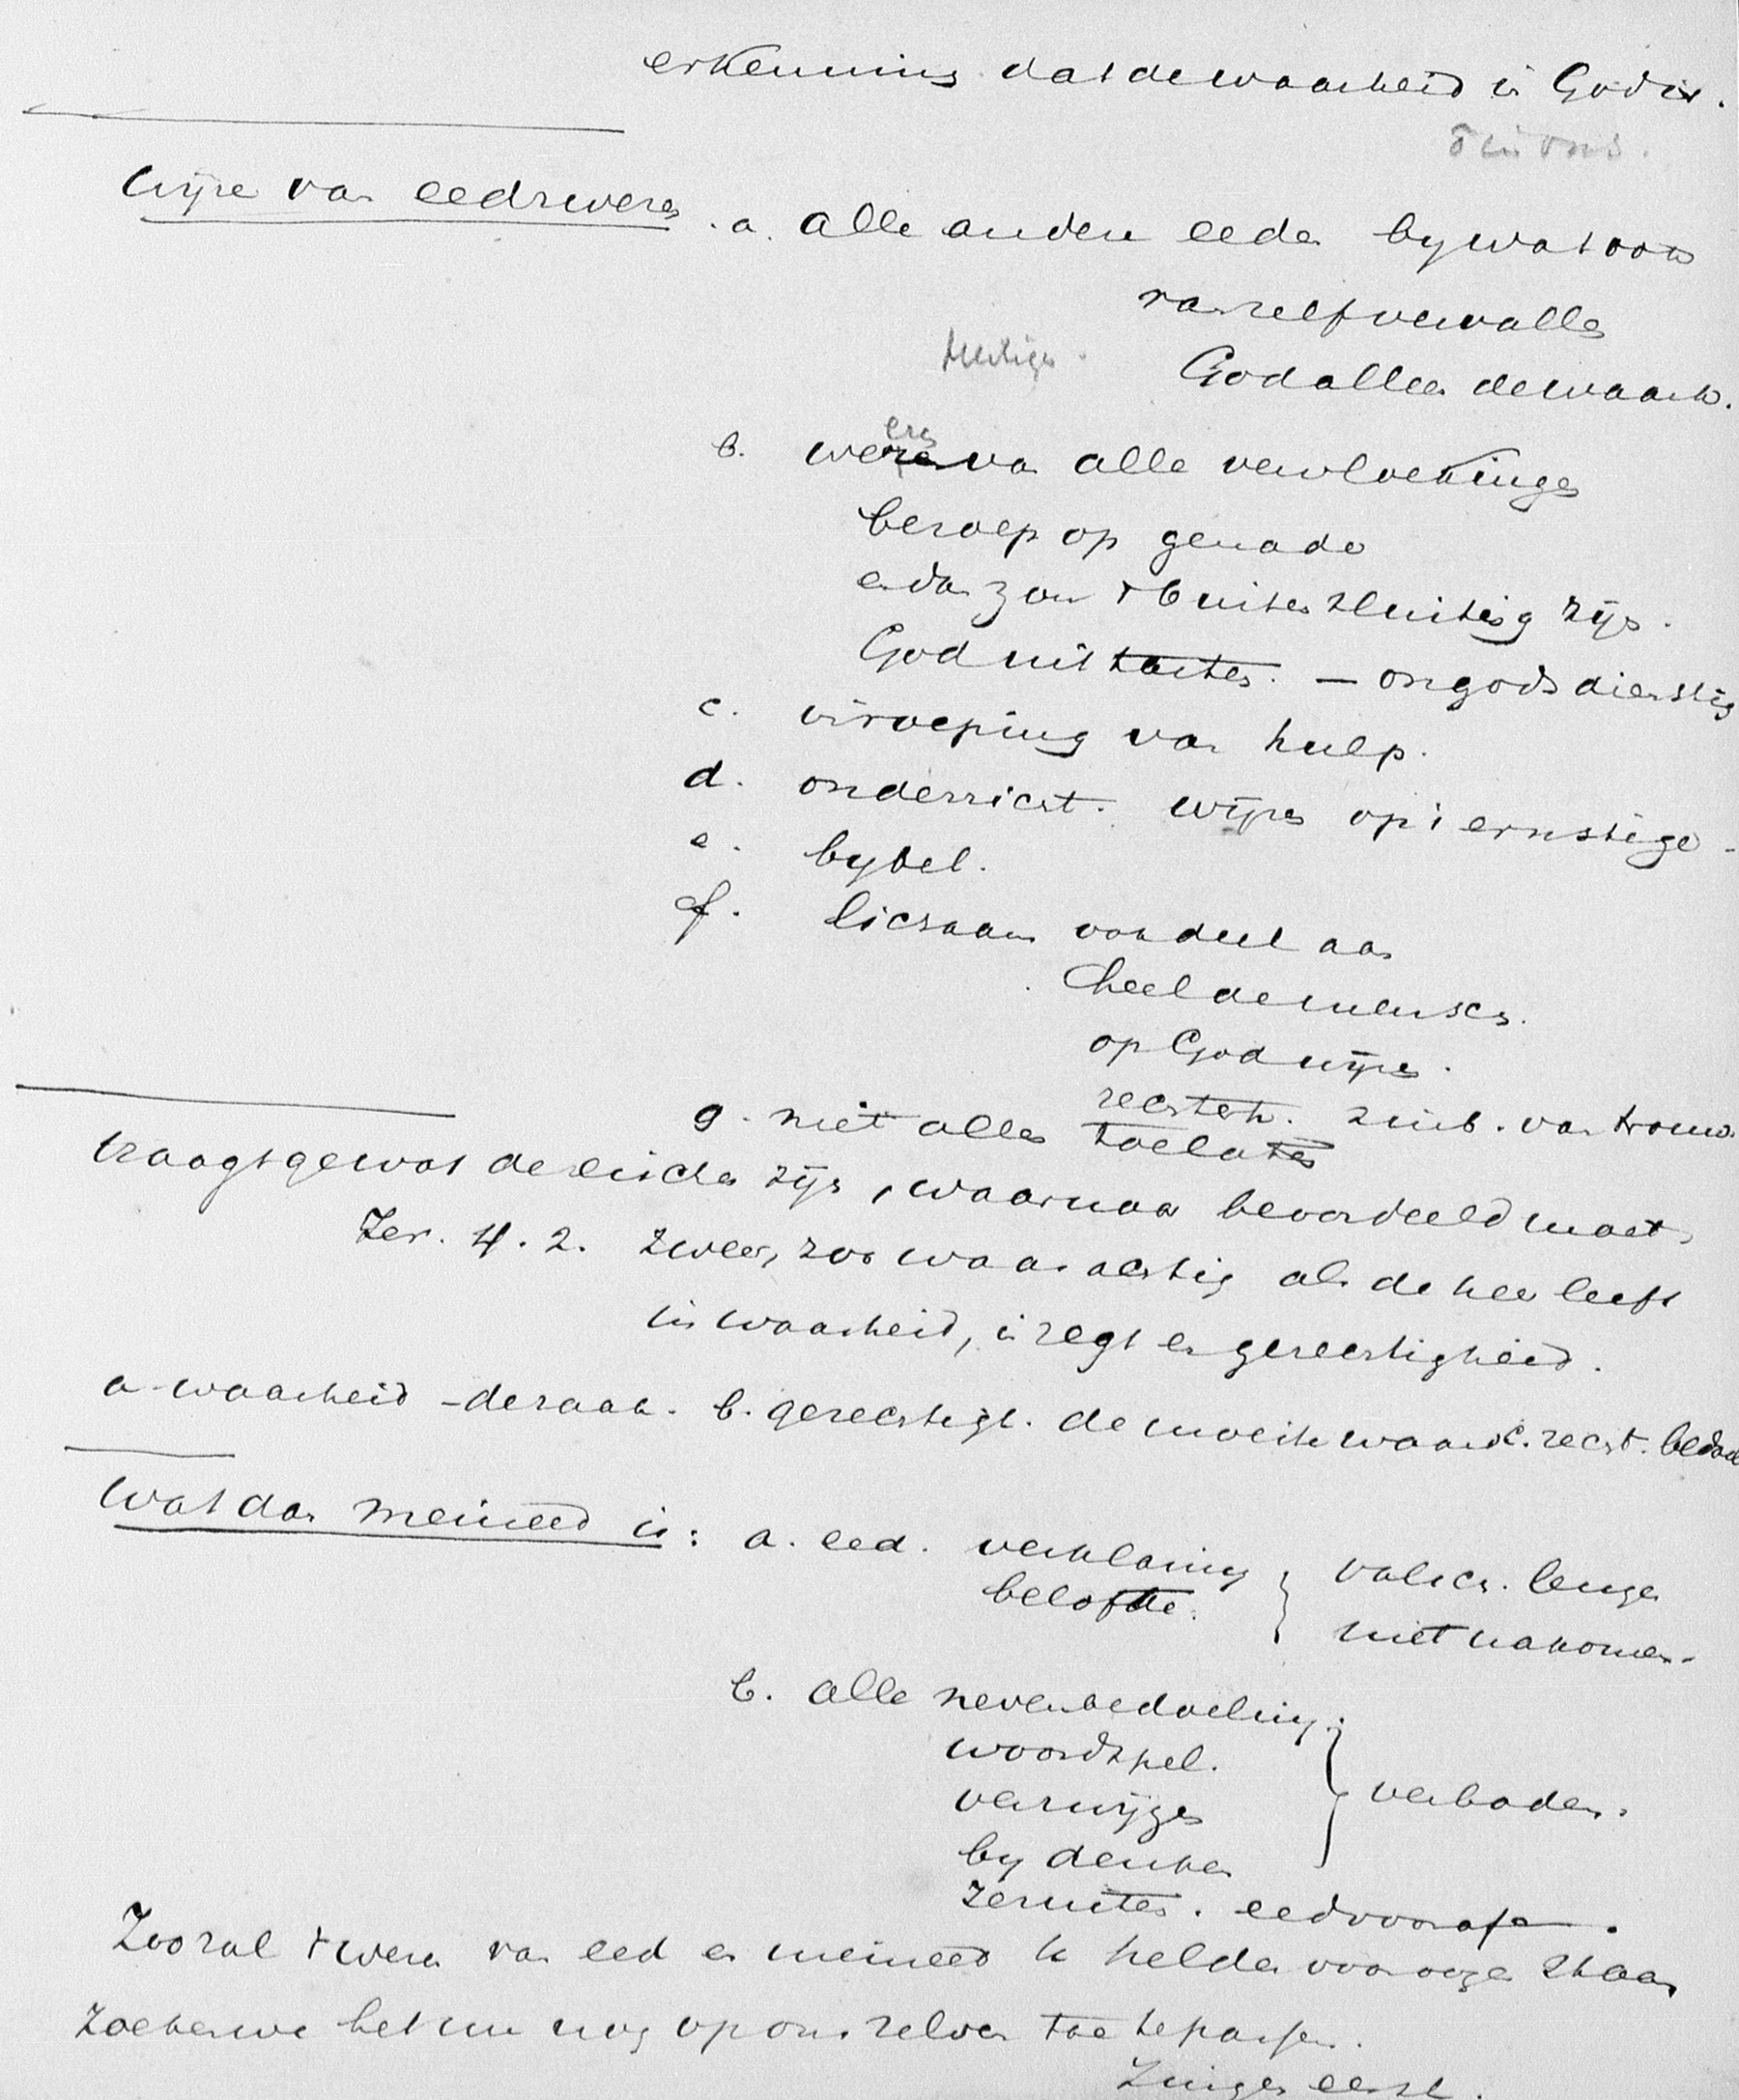 erkenning dat de waarheid in God is.
Wijze van eedzweren. a. alle andere eeden by wat ook
vanzelf vervallen
God alleen de waarh.
b. weren van alle vervloekingen
beroep op genade
en dan zou 't buitensluiting zijn.
God uittarten. — ongodsdienstig
c. inroeping van hulp.
d. onderricht. wijzen op 't ernstige -
e. bybel.
f. lichaam oordeel aan
heel de mensch.
op God wijzen.
rechterh. zinb. van trouw.
g. niet alles toelaten
Vraagt ge wat de eischen zijn, waarnaar beoordeeld moet,
Jer. 4.2. Zweer, zoo waarachtig als de heer leeft
in waarheid, in regt en gerechtigheid.
a. waarheid - de zaak. b. gerechtigh. de moeite waard c. recht.
Wat dan meineed is: a. eed. verklaring } valsch. leugen
belofte. } niet nakomen.
b. alle nevenbedoeling.
woordspel.
verzwijgen } verboden.
by denken
Jezuiten. eed vooraf
Zoo zal 't wezen van eed en meineed te helder voor oogen staan
Zoeken we het nu nog op ons zelven toe te passen.
Zingen eerst.